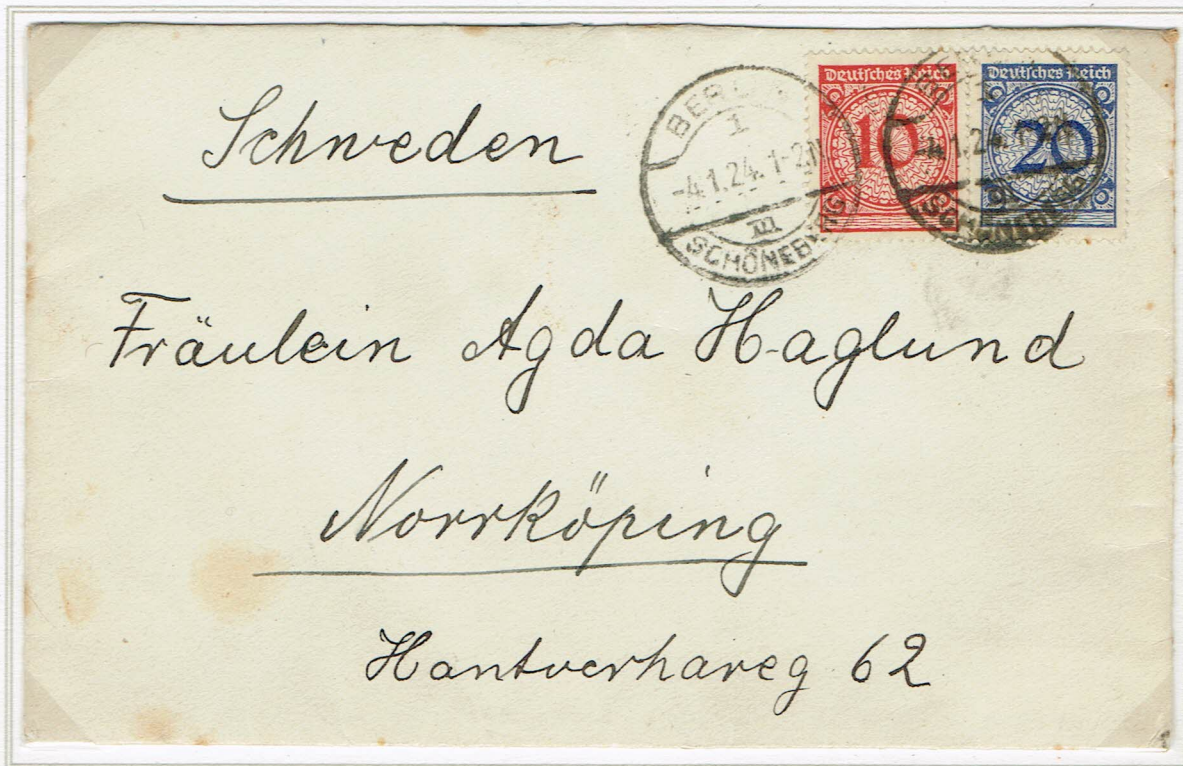 Schweden
BERLIN
1
-4.1.24.1-2N
III
SCHÖNEBERG
Deutsches Reich
10
Deutsches Reich
20
-4.1.24.1-2N
SCHÖNEBERG
Fräulein Agda Haglund
Norrköping
Hantverhareg 62